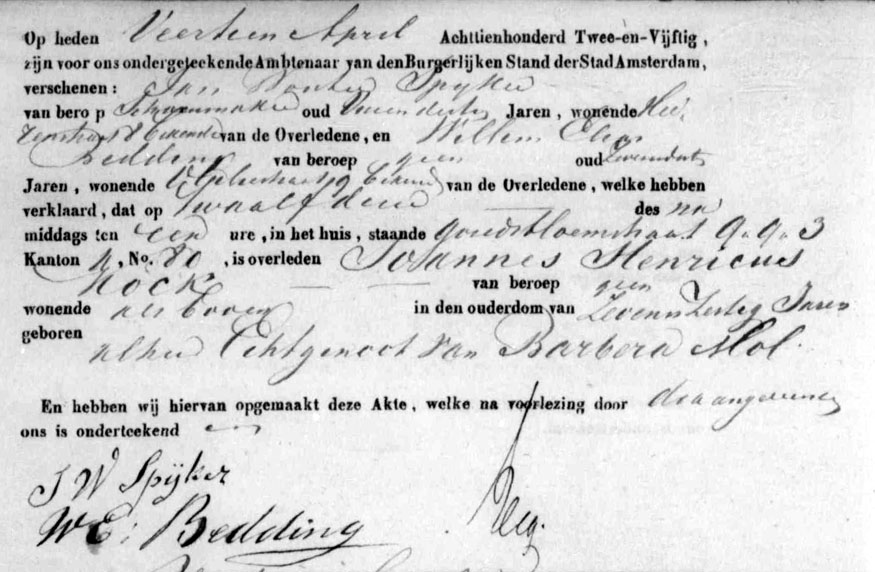 Op heden Veertien April Achttienhonderd Twee-en-Vijftig,
zijn voor ons ondergeteekende Ambtenaar van den Burgerlijken Stand der Stad Amsterdam,
verschenen: Jan Spijker
van bero p Schoenmaker oud Jaren, wonende Hee-
renstraat 8 bekende van de Overledene, en Willem
Bedding van beroep geen oud
Jaren, wonende 9 bekende van de Overledene, welke hebben
verklaard, dat op Twaalf dezer des na
middags ten een ure, in het huis, staande Goudsbloemstraat 3
Kanton 4, No. 80, is overleden Johannes Henricus
Kock van beroep geen
wonende als boven in den ouderdom van Zevenenzestig Jaren
geboren
alhier Echtgenoot van Barbera Mol.
En hebben wij hiervan opgemaakt deze Akte, welke na voorlezing door de aangevers
ons is onderteekend
J W Spijker
W E: Bedding